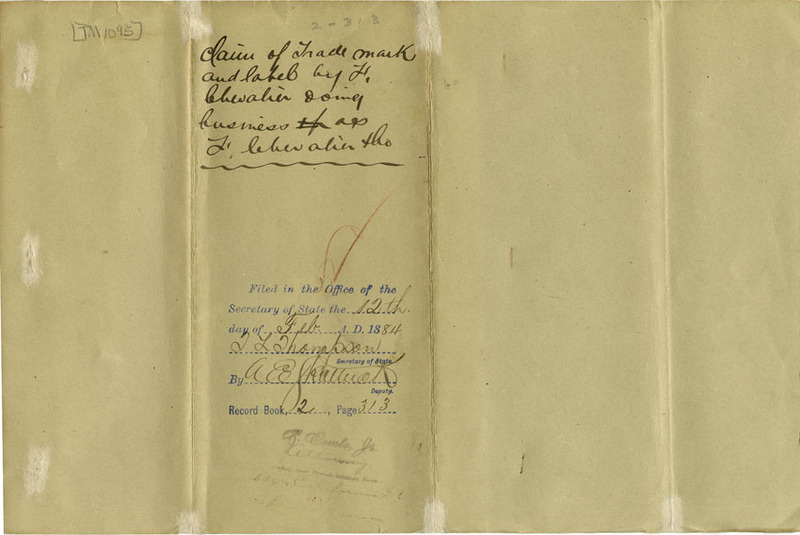 [TM1095]
2-313
Claim of Trade mark
and label by F.
Chevalier doing
business as
F. Chevalier & Co
Filed in the Office of the
Secretary of State the 12th
day of Feb A. D. 1884
T L Thompson
Secretary of State.
By A E
Deputy.
Record Book, 2, Page 313